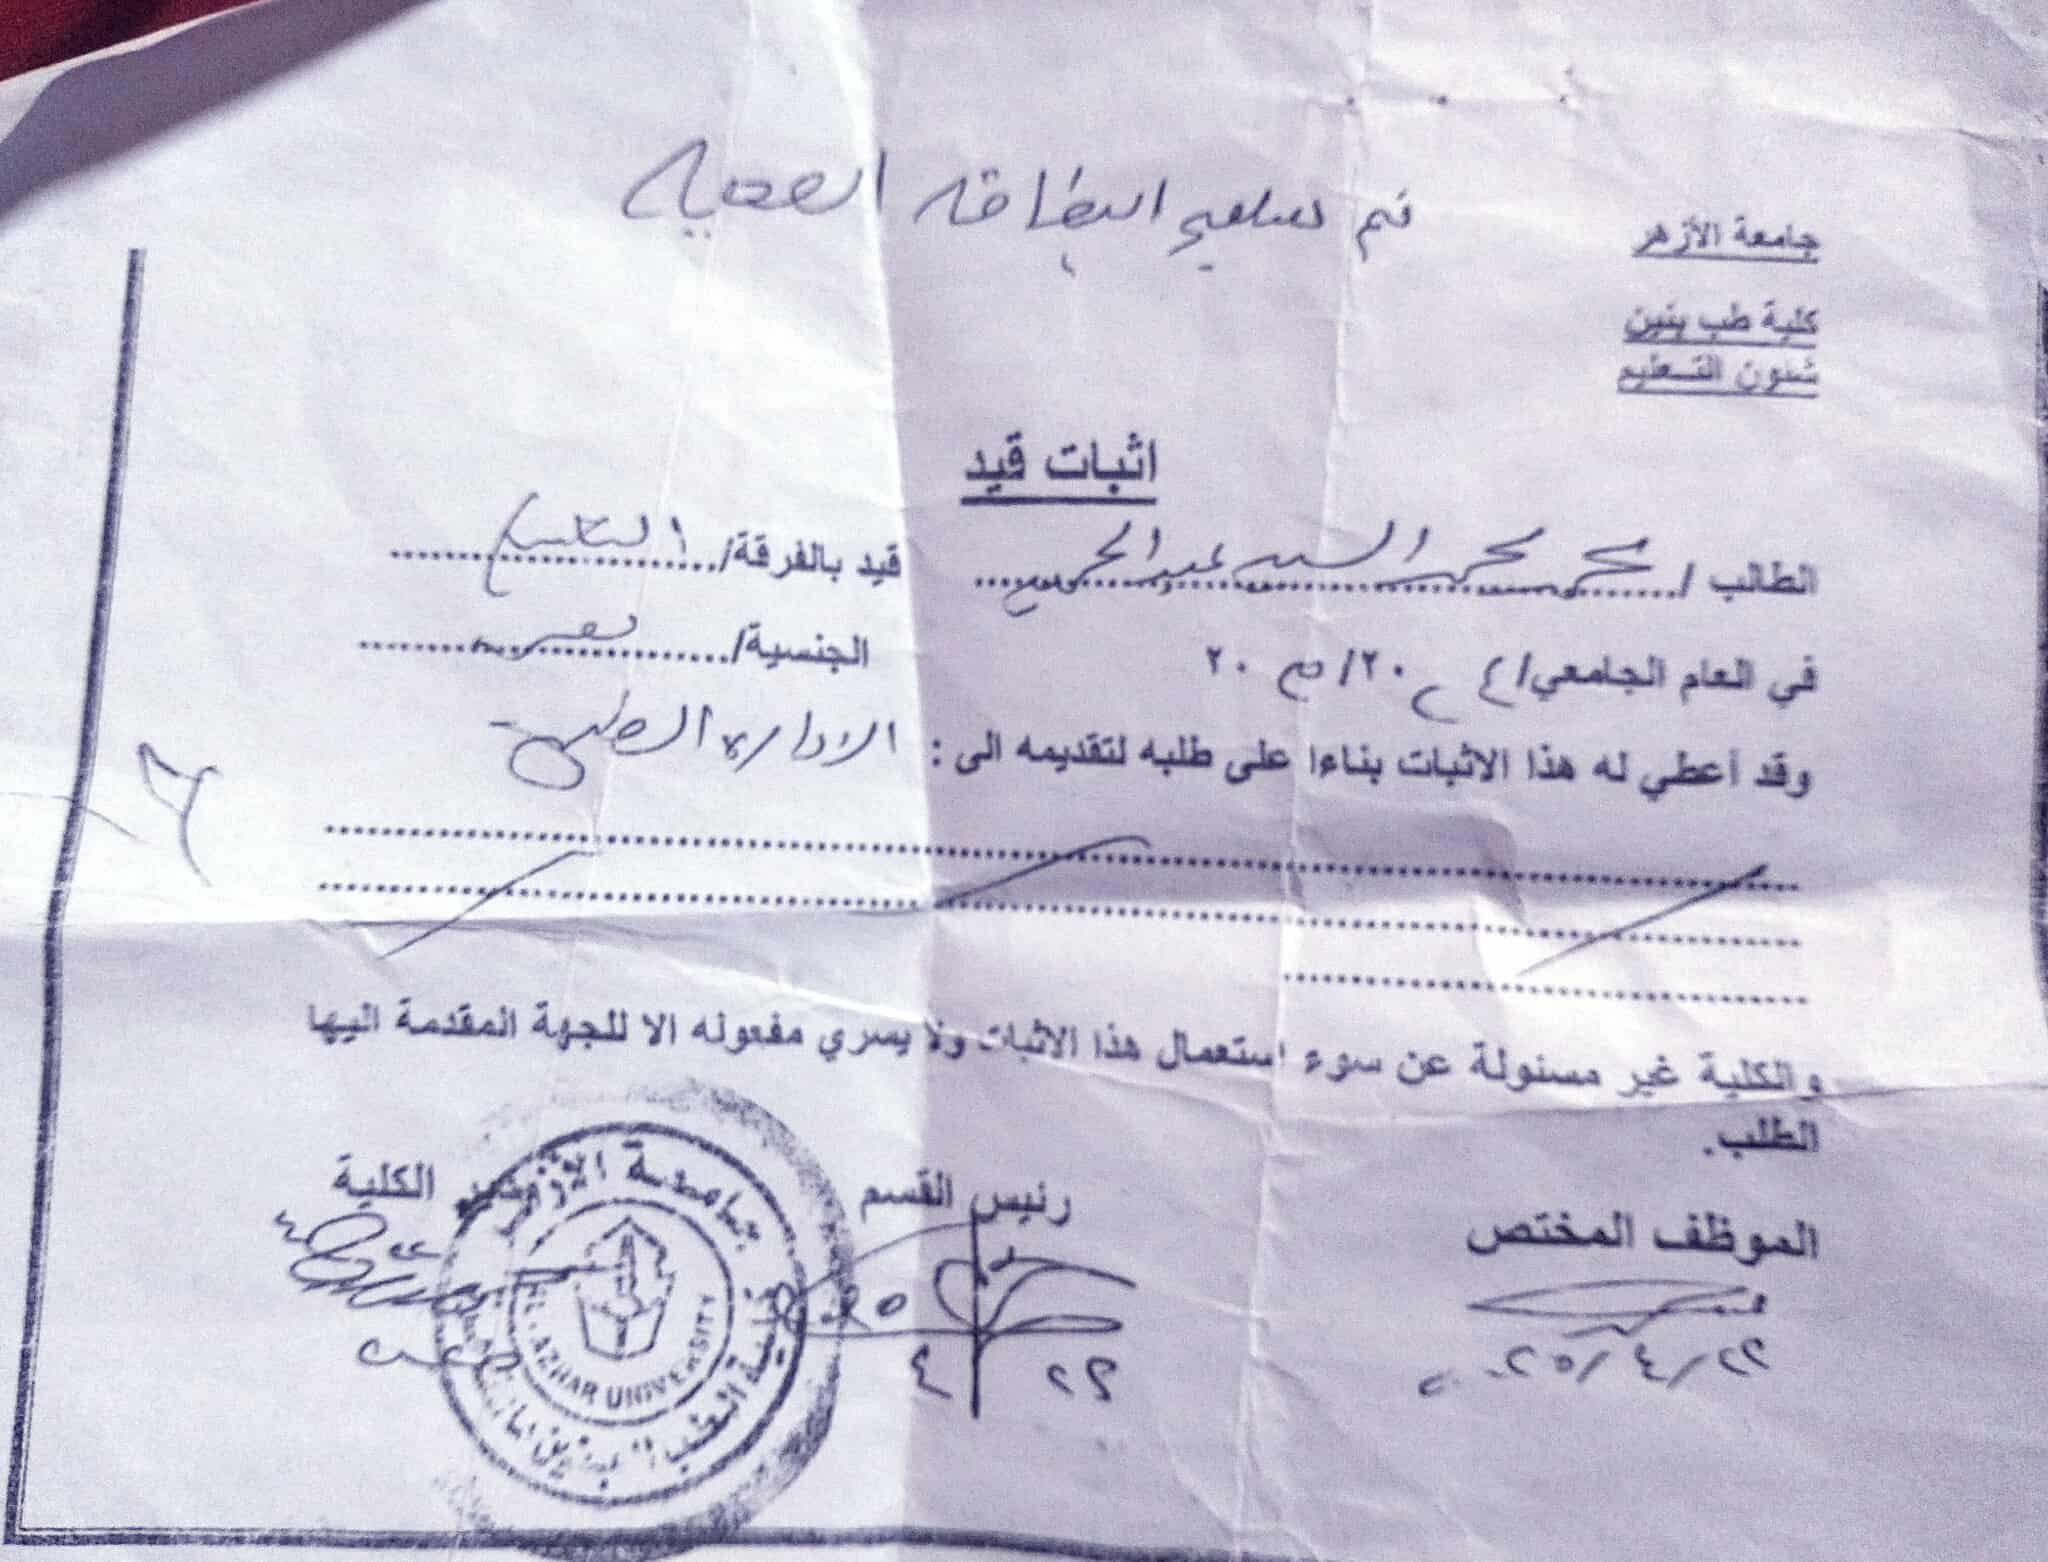 تم تسليم البطاقة الصحية
جامعة الأزهر
كلية طب بنين
شئون التعليم
اثبات قيد
الطالب / محمد محمد السيد عبد الحميد قيد بالفرقة/
في العام الجامعي/ ٢٠٢٤/ ٢٠٢٥ الجنسية/ مصرى
وقد أعطي له هذا الاثبات بناءا على طلبه لتقديمه الى : الادارة الطبية
والكلية غير مسئولة عن سوء استعمال هذا الاثبات ولا يسري مفعوله الا للجهة المقدمة اليها
الطلب.
الموظف المختص رئيس القسم الكلية
٢٢/٤/٢٠٢٥
٢٢ ٤
جامعة الأزهر
AZHAR UNIVERSITY
كلية الطب بنين